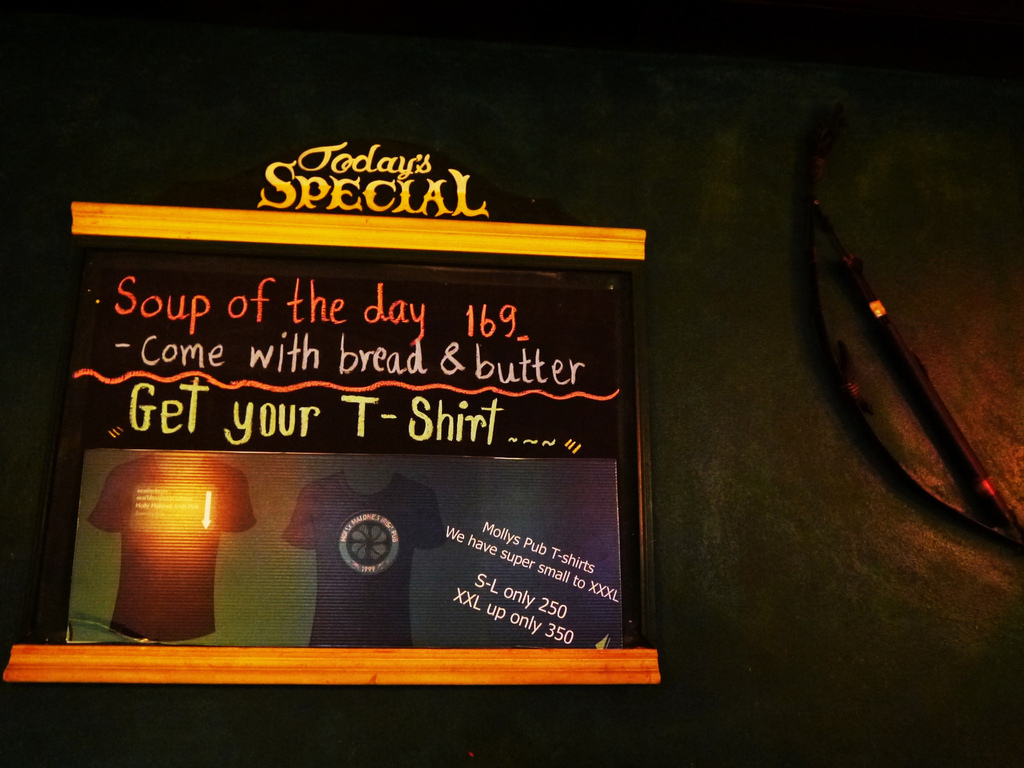 Today's
SPECIAL
Soup of the day 169
- Come with bread & butter
Get your T-Shirt
MOLLY MALONE'S IRISH PUB
Mollys Pub T-shirts
We have super small to XXXL
S-L only 250
XXL up only 350